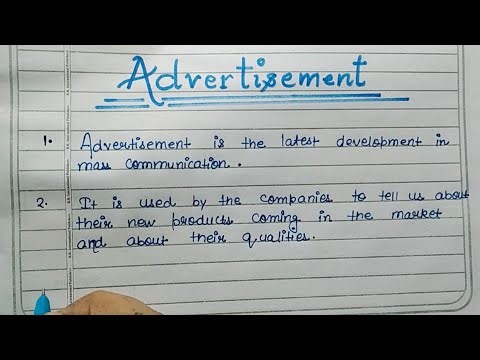 Advertisement
1. Advertisement is the latest development in
mass communication.
2. It is used by the companies to tell us about
their new products coming in the market
and about their qualities.